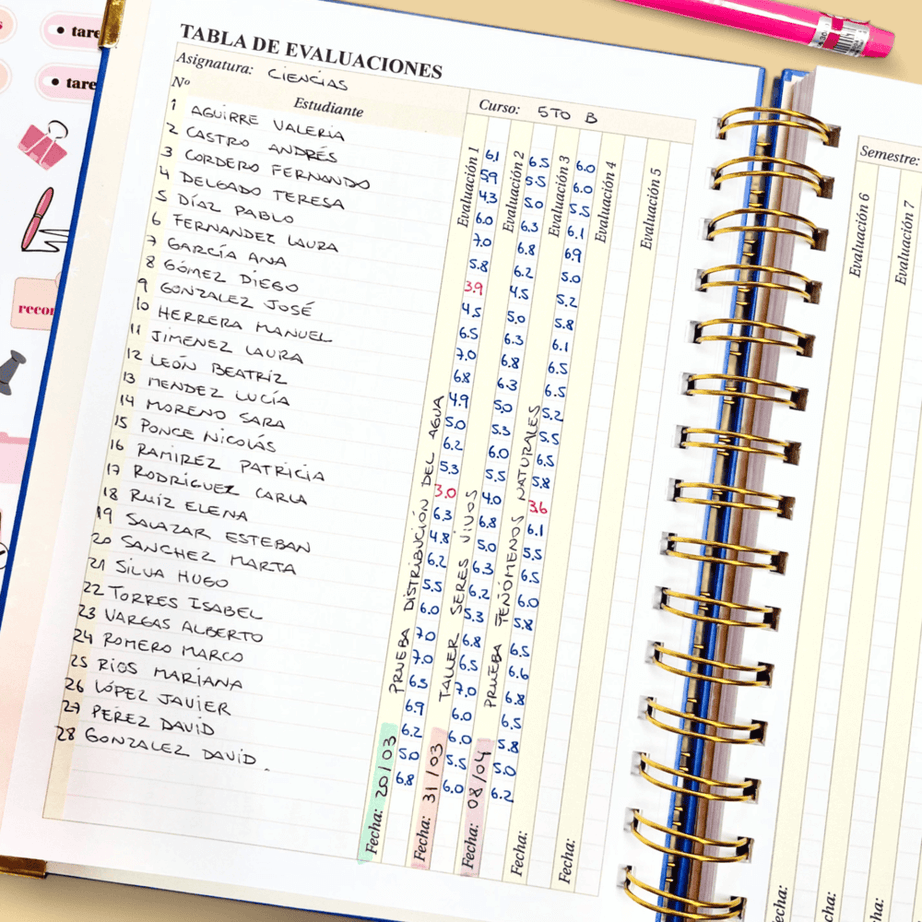 tare
tare
recor
TABLA DE EVALUACIONES
Asignatura: CIENCIAS
Curso: 5TO B
Semestre:
Nº Estudiante Evaluación 1 Evaluación 2 Evaluación 3 Evaluación 4 Evaluación 5 Evaluación 6 Evaluación 7
1 AGUIRRE VALERIA 6.1 6.5 6.0
2 CASTRO ANDRÉS 5.9 5.5 6.0
3 CORDERO FERNANDO 4.3 5.0 5.5
4 DELGADO TERESA 6.0 6.3 6.1
5 DÍAZ PABLO 7.0 6.8 6.9
6 FERNANDEZ LAURA 5.8 6.2 5.0
7 GARCÍA ANA 3.9 4.5 5.2
8 GÓMEZ DIEGO 4.5 5.0 5.8
9 GONZALEZ JOSÉ 6.5 6.3 6.1
10 HERRERA MANUEL 7.0 6.8 6.5
11 JIMENEZ LAURA 6.8 6.3 6.5
12 LEÓN BEATRIZ 4.9 5.0 5.2
13 MENDEZ LUCÍA 5.0 5.3 5.5
14 MORENO SARA 6.2 6.0 6.5
15 PONCE NICOLÁS 5.3 5.5 5.8
16 RAMIREZ PATRICIA 3.0 4.0 3.6
17 RODRÍGUEZ CARLA 6.3 6.8 6.1
18 RUÍZ ELENA 4.8 5.0 5.5
19 SALAZAR ESTEBAN 6.2 6.3 6.5
20 SANCHEZ MARTA 5.5 6.2 6.0
21 SILVA HUGO 6.0 5.3 5.8
22 TORRES ISABEL 7.0 6.8 6.5
23 VARGAS ALBERTO 7.0 6.5 6.6
24 ROMERO MARCO 6.5 7.0 6.8
25 RÍOS MARIANA 6.9 6.0 6.5
26 LÓPEZ JAVIER 6.2 6.0 5.8
27 PÉREZ DAVID 5.0 5.5 5.0
28 GONZALEZ DAVID. 6.8 6.0 6.2
PRUEBA DISTRIBUCIÓN DEL AGUA
TALLER SERES VIVOS
PRUEBA FENÓMENOS NATURALES
Fecha: 20/03
Fecha: 31/03
Fecha: 08/04
Fecha:
Fecha:
echa:
cha:
ha: